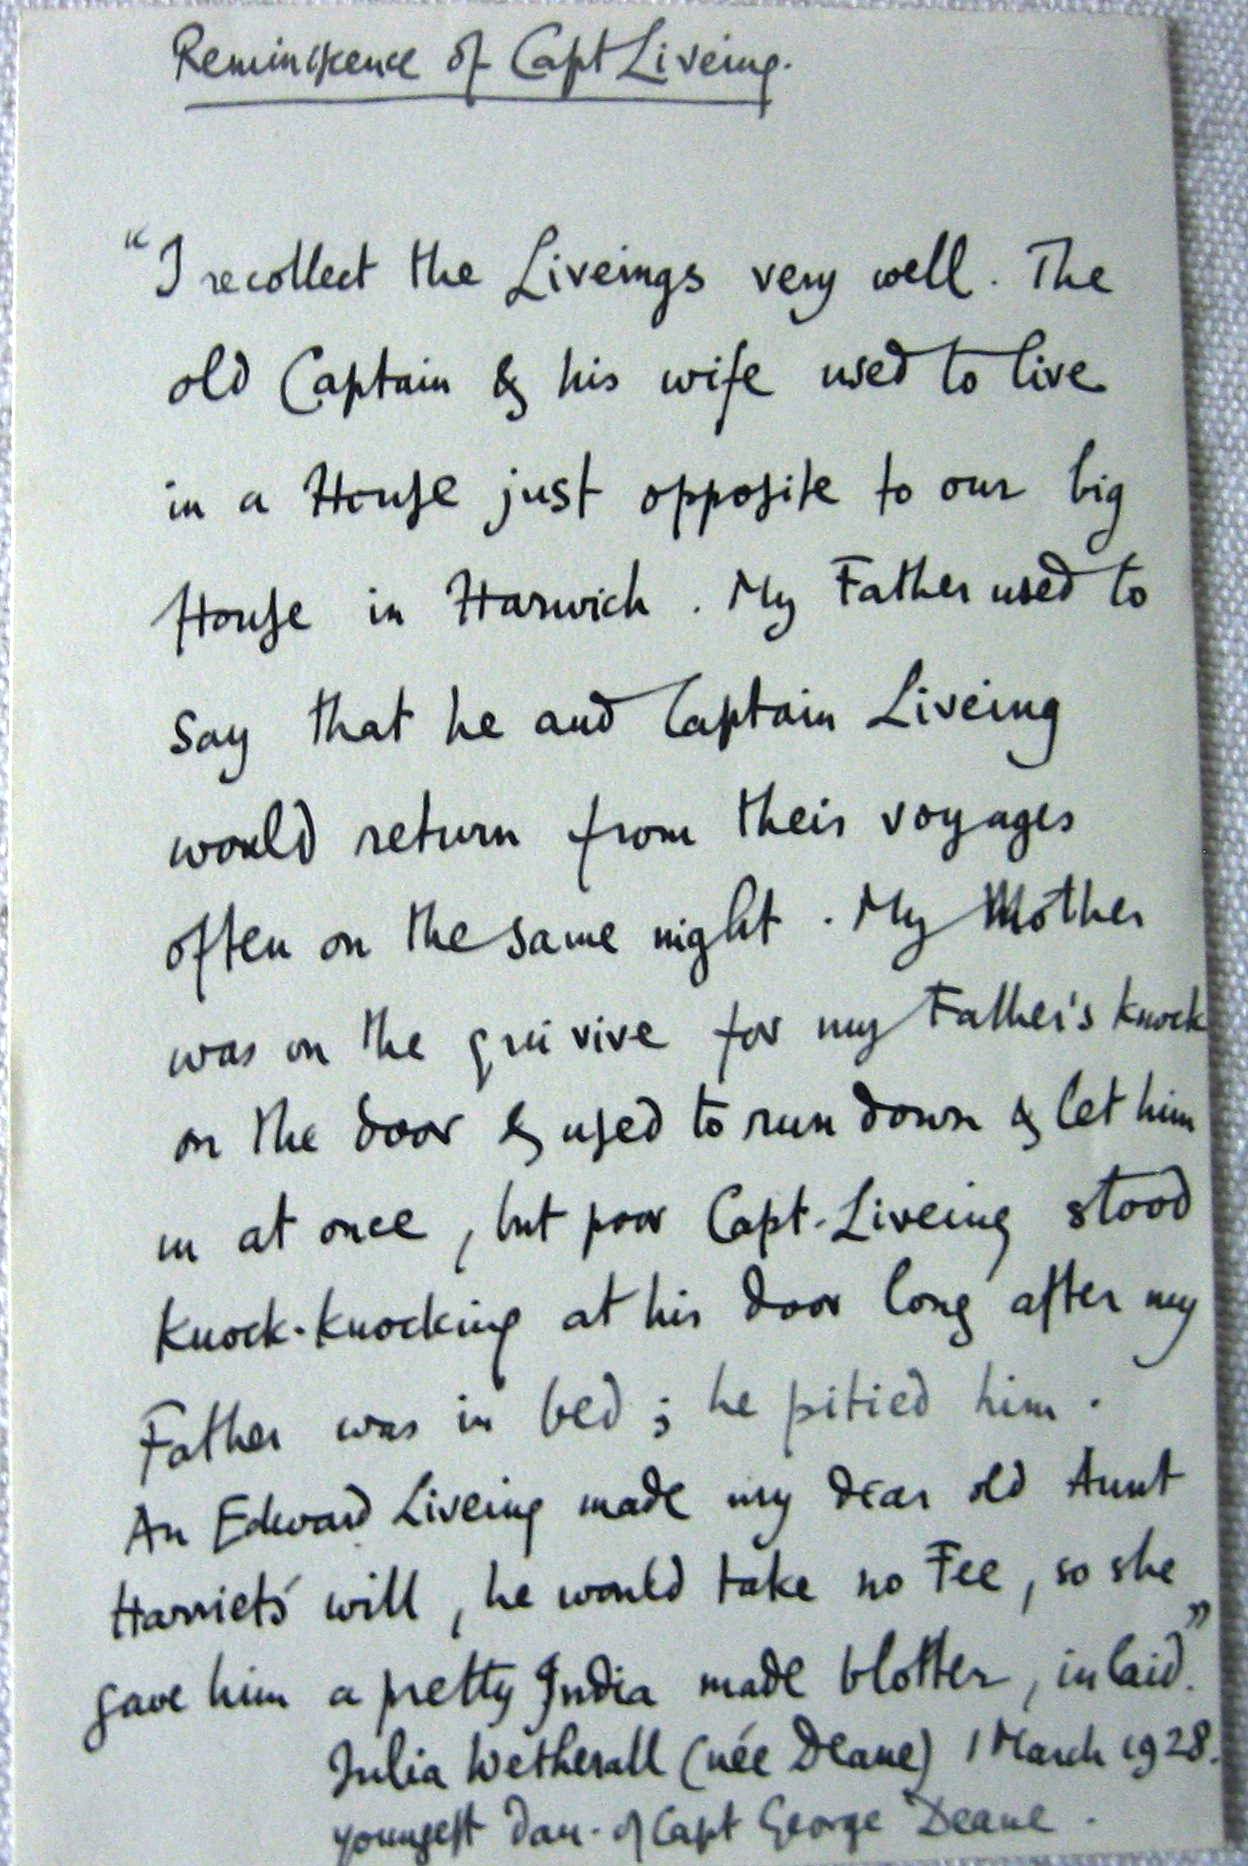 Reminiscence of Capt Liveing.
"I recollect the Liveings very well. The
old Captain & his wife used to live
in a House just opposite to our big
House in Harwich. My Father used to
say that he and Captain Liveing
would return from their voyages
often on the same night. My Mother
was on the qui vive for my Father's knock
on the door & used to run down & let him
in at once, but poor Capt. Liveing stood
knock-knocking at his door long after my
Father was in bed; he pitied him.
An Edward Liveing made my dear old Aunt
Harriets' will, he would take no Fee, so she
gave him a pretty India made blotter, inlaid."
Julia Wetherall (née Deane) 1 March 1928.
youngest dau. of Capt George Deane.